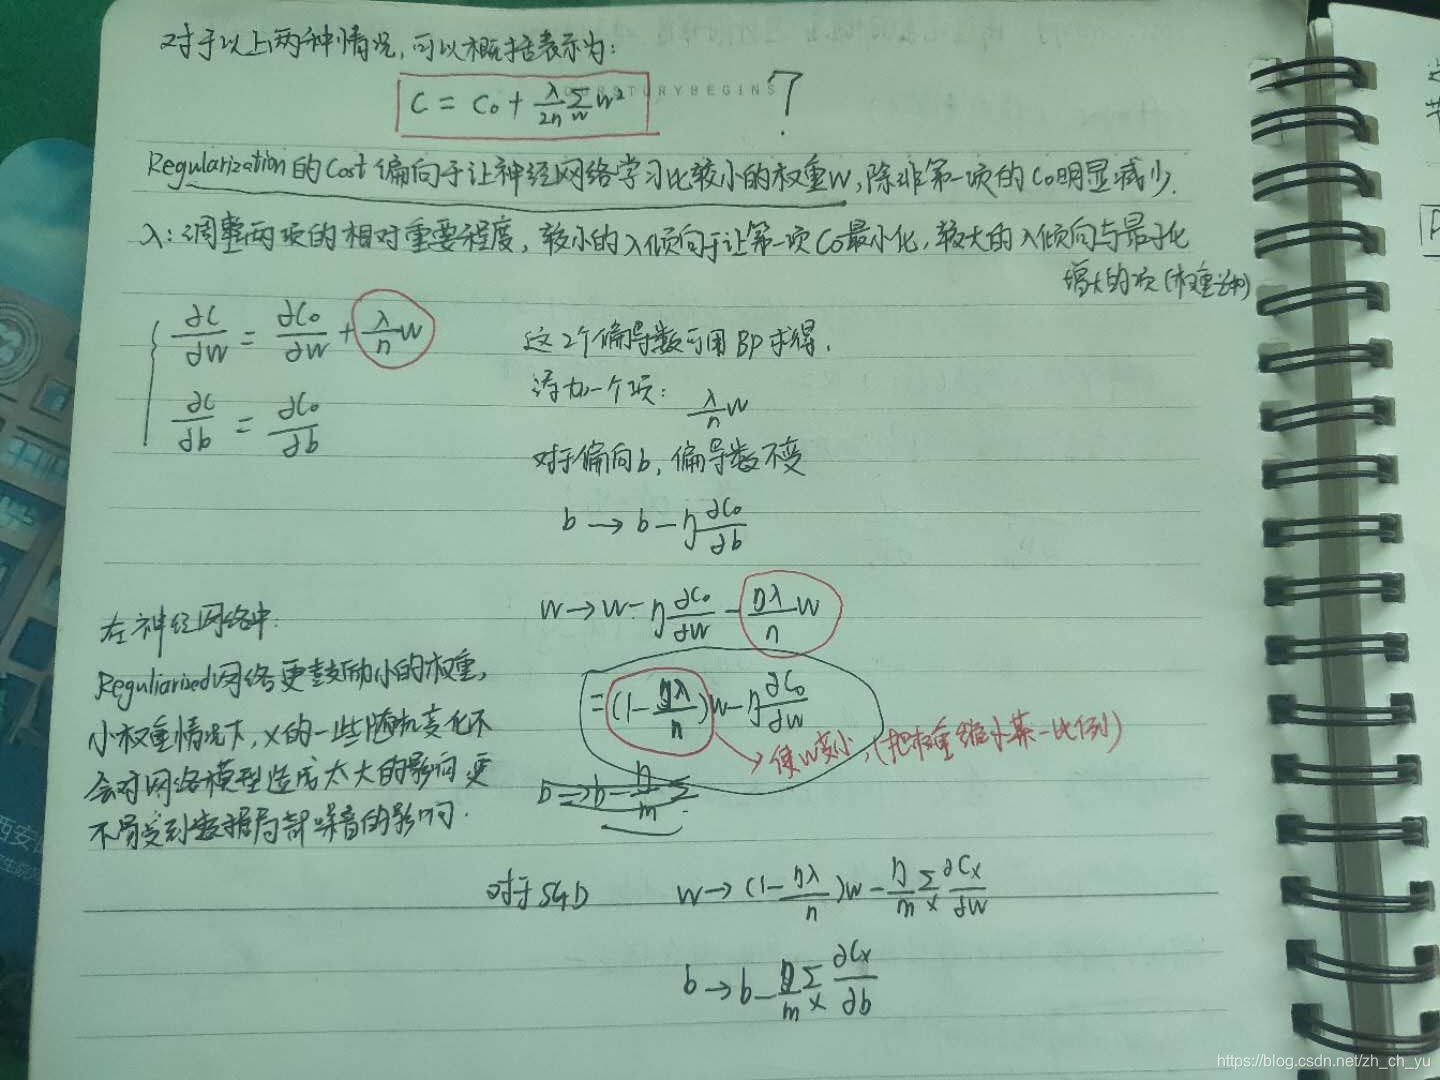 对于以上两种情况,可以概括表示为:
C = C₀ + λ/2n Σ_w w² ?
STORYBEGINS
Regularization的Cost偏向于让神经网络学习比较小的权重w,除非第一项的C₀明显减少.
λ:调整两项的相对重要程度,较小的λ倾向于让第一项C₀最小化,较大的λ倾向与最小化
增大的项(权重之和)
∂C/∂w = ∂C₀/∂w + λ/n w
∂C/∂b = ∂C₀/∂b
这2个偏导数可用BP求得.
添加一个项:
λ/n w
对于偏向b,偏导数不变
b → b - η ∂C₀/∂b
w → w - η ∂C₀/∂w - ηλ/n w
= (1 - ηλ/n)w - η ∂C₀/∂w
使w变小,(把权重缩小某一比例)
b → b - η/m Σ
在神经网络中:
Reguliarized网络更鼓励小的权重,
小权重情况下,x的一些随机变化不
会对网络模型造成太大的影响,更
不易受到数据局部噪音的影响.
对于SGD
w → (1 - ηλ/n)w - η/m Σ_x ∂Cₓ/∂w
b → b - η/m Σ_x ∂Cₓ/∂b
西安
https://blog.csdn.net/zh_ch_yu